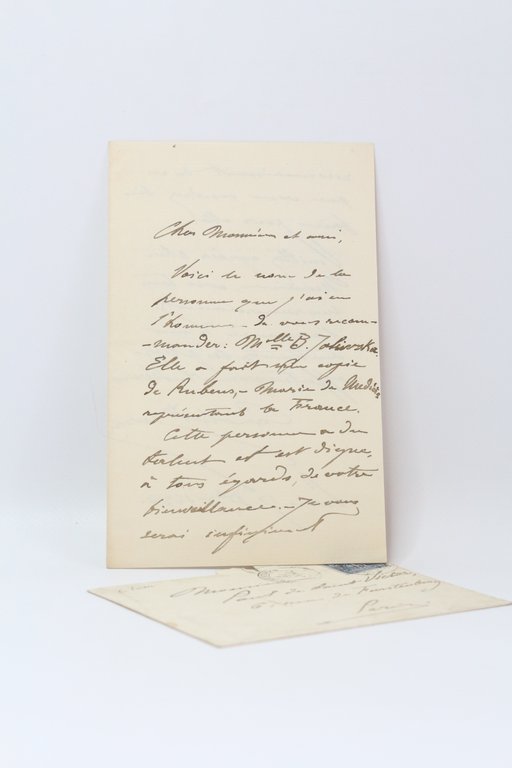 Cher Monsieur et ami,
Voici le nom de la
personne que j'ai eu
l'honneur de vous recom-
-mander: Melle B.
Elle a fait une copie
de Rubens, - Marie de Médicis
représentant la France.
Cette personne a du
talent et est digne,
à tous égards, de votre
bienveillance. - Je vous
serai infiniment
Monsieur
Paul de Saint Victor
de Furstenberg
Paris